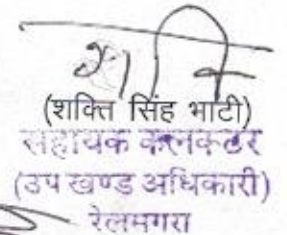 (शक्ति सिंह भाटी)
सहायक कलक्टर
(उप खण्ड अधिकारी)
रेलमगरा